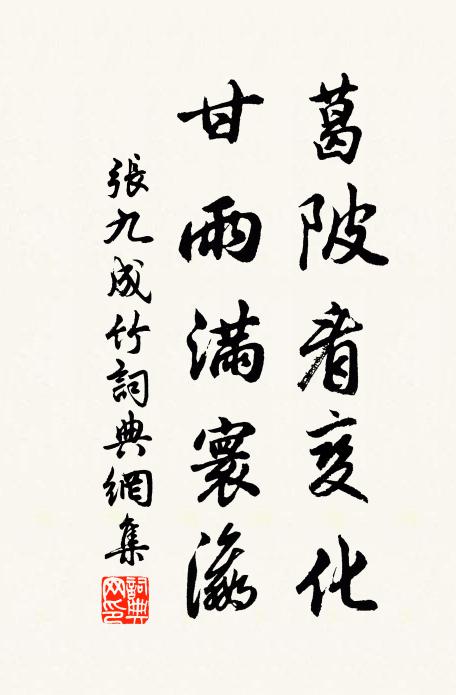 葛陂看变化
甘雨满寰瀛
張九成竹詞典網集
詞典网印